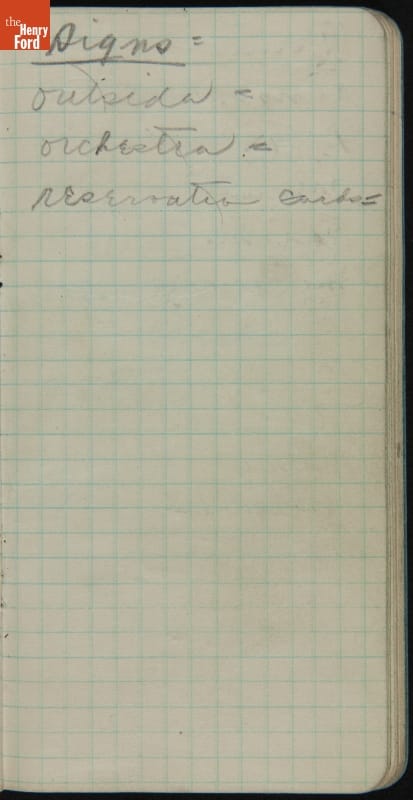 the
Henry
Ford
Signs =
outside =
orchestra =
reservation cards =